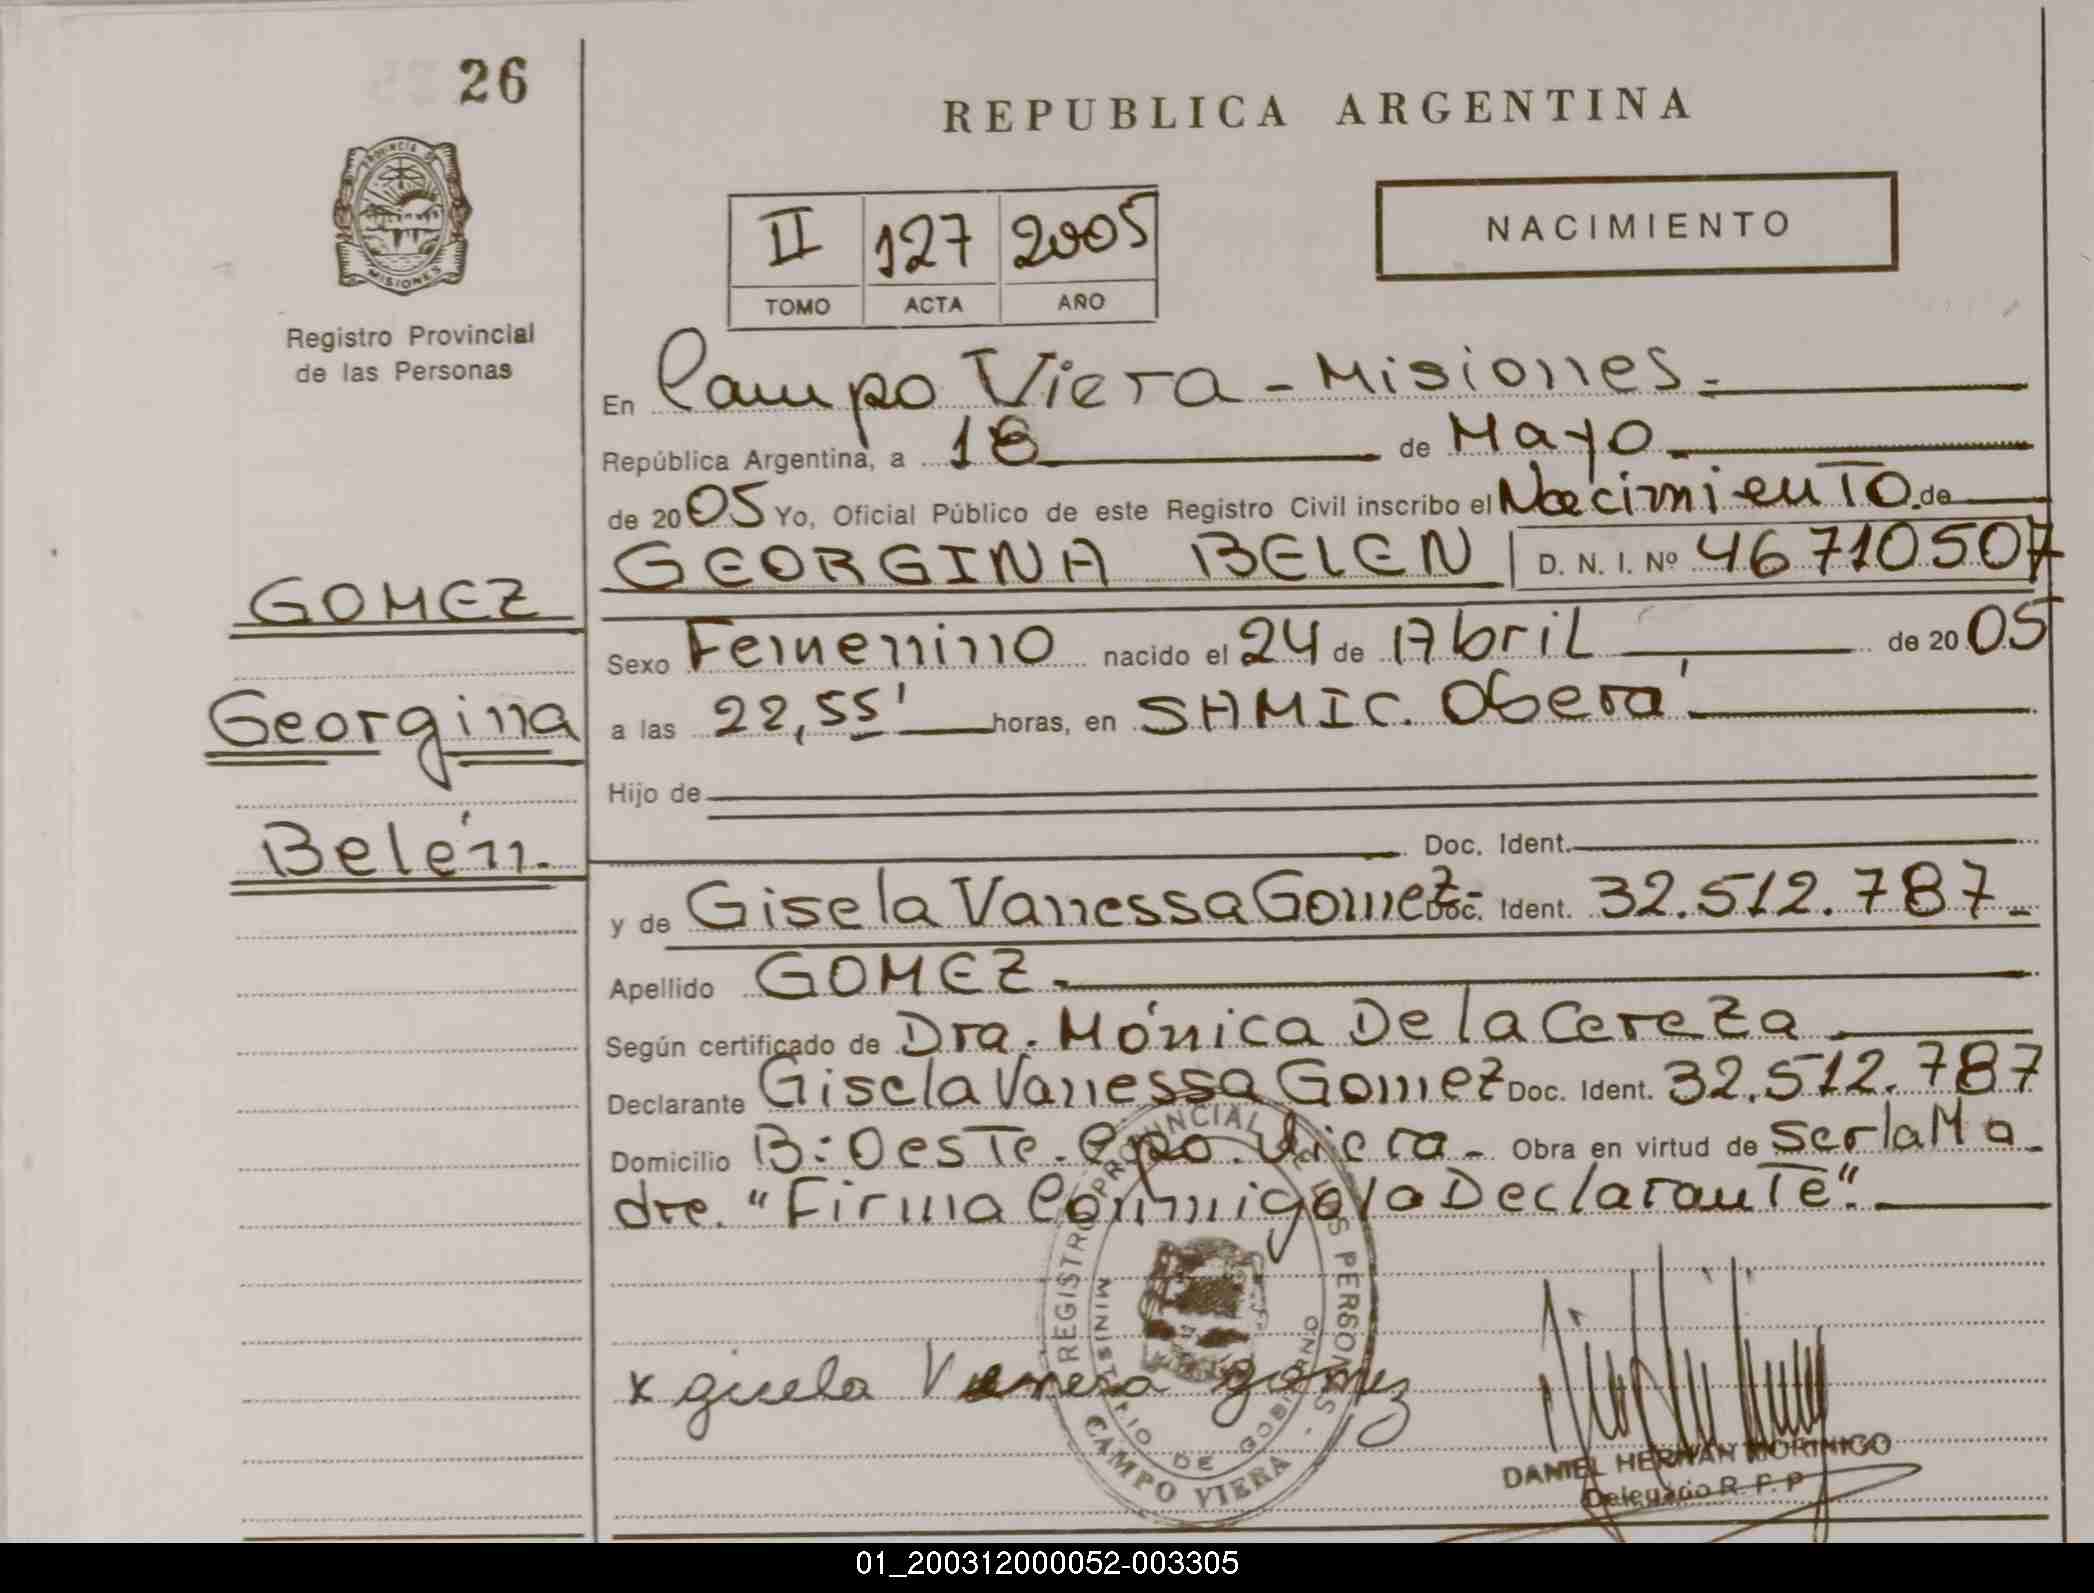 26
PROVINCIA DE
MISIONES
Registro Provincial
de las Personas
GOMEZ
Georgina
Belén.
REPUBLICA ARGENTINA
II 127 2005
TOMO ACTA AÑO
NACIMIENTO
En Campo Viera - Misiones.
República Argentina, a 18 de Mayo
de 2005 Yo, Oficial Público de este Registro Civil inscribo el Nacimiento de
GEORGINA BELEN D. N. I. Nº 46710507
Sexo Femenino nacido el 24 de Abril de 2005
a las 22,55' horas, en SAMIC. Oberá
Hijo de
Doc. Ident.
y de Gisela Vanessa Gomez- Doc. Ident. 32.512.787-
Apellido GOMEZ.
Según certificado de Dra. Mónica De la Cereza
Declarante Gisela Vanessa Gomez Doc. Ident. 32.512.787
Domicilio B: Oeste. Cpo. Viera - Obra en virtud de ser la Ma-
dre. "Firma Conmigo la Declarante".
REGISTRO PROVINCIAL DE LAS PERSONAS -
MINISTERIO DE GOBIERNO
CAMPO VIERA
x gisela Vanessa gomez
DANIEL HERNAN MORINIGO
Delegado R. P. P
01_200312000052-003305